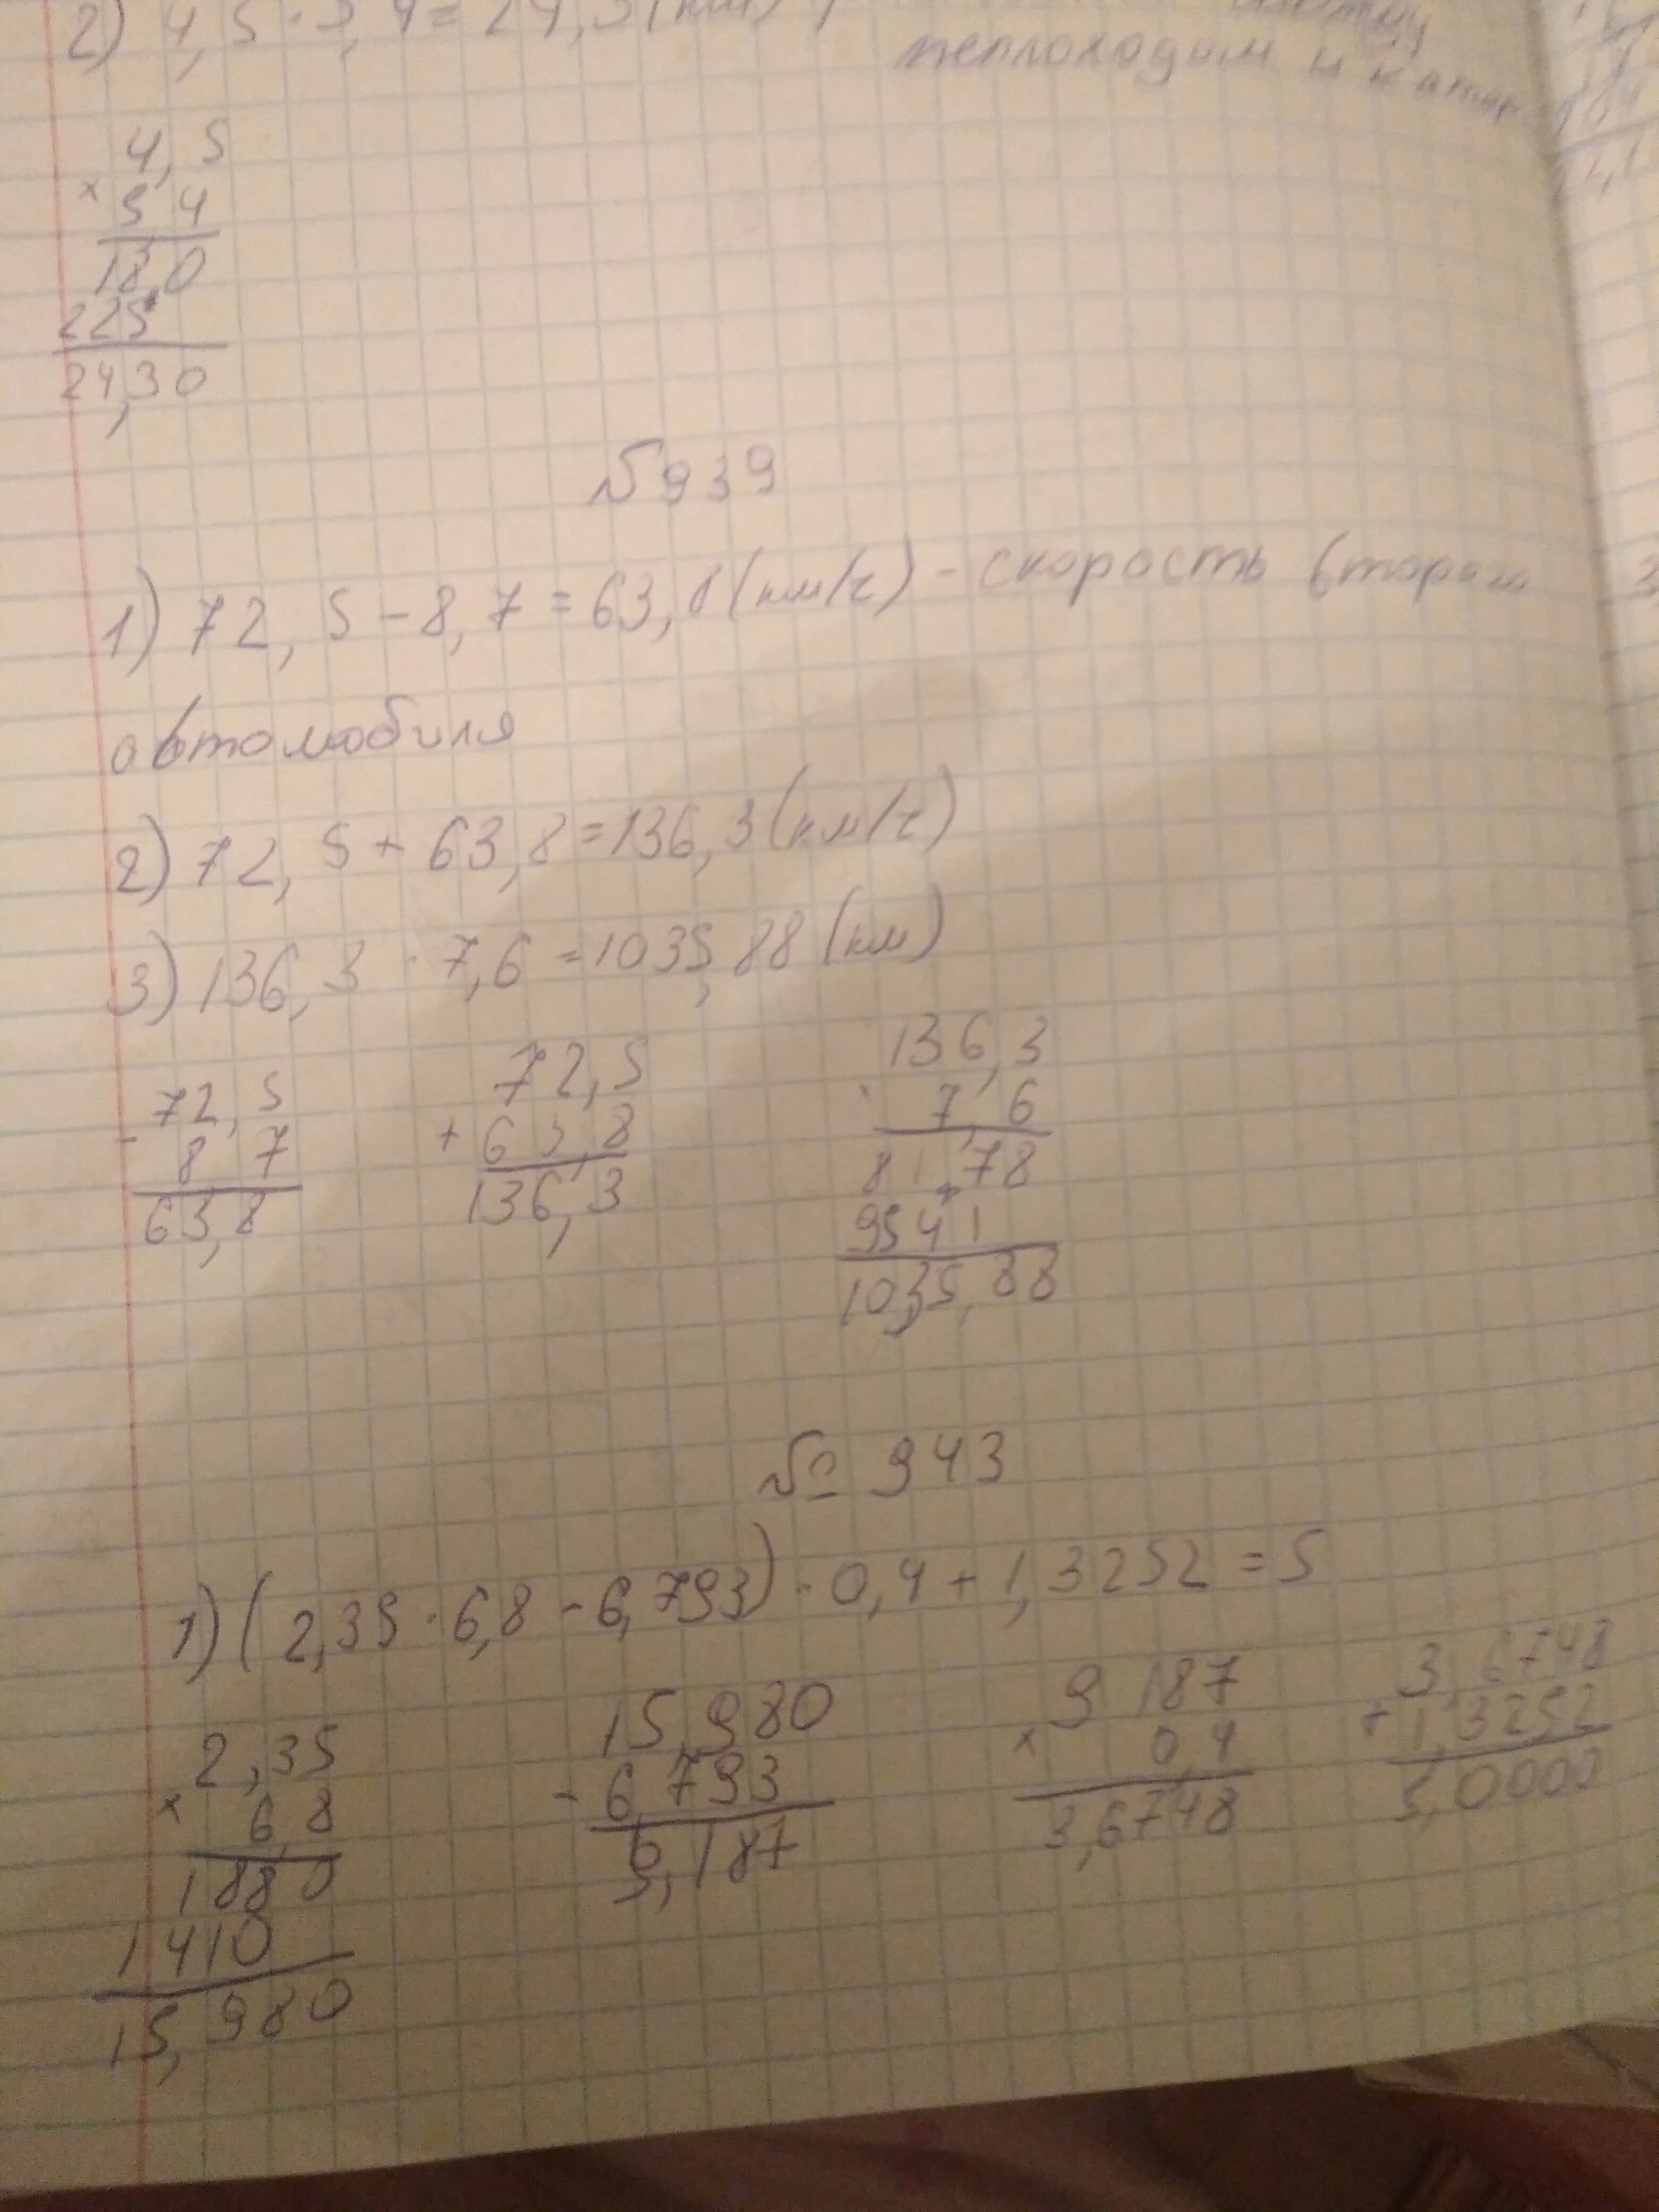 2) 4,5 · 5,4 = 24,3 (км)
теплоходом и катер
4,5
× 5 4
18 0
225
24,30
№939
1) 72,5 - 8,7 = 63,8 (км/ч) - скорость второго
автомобиля
2) 72,5 + 63,8 = 136,3 (км/ч)
3) 136,3 · 7,6 = 1035,88 (км)
72,5 72,5 136,3
- 8,7 + 63,8 · 7,6
63,8 136,3 81 78
+
954 1
1035,88
№ 943
1) (2,35 · 6,8 - 6,793) · 0,4 + 1,3252 = 5
2,35 15,980 9 187 3,6748
× 6,8 - 6,793 × 0,4 + 1,3252
1880 9,187 3,6748 5,0000
1410
15,980